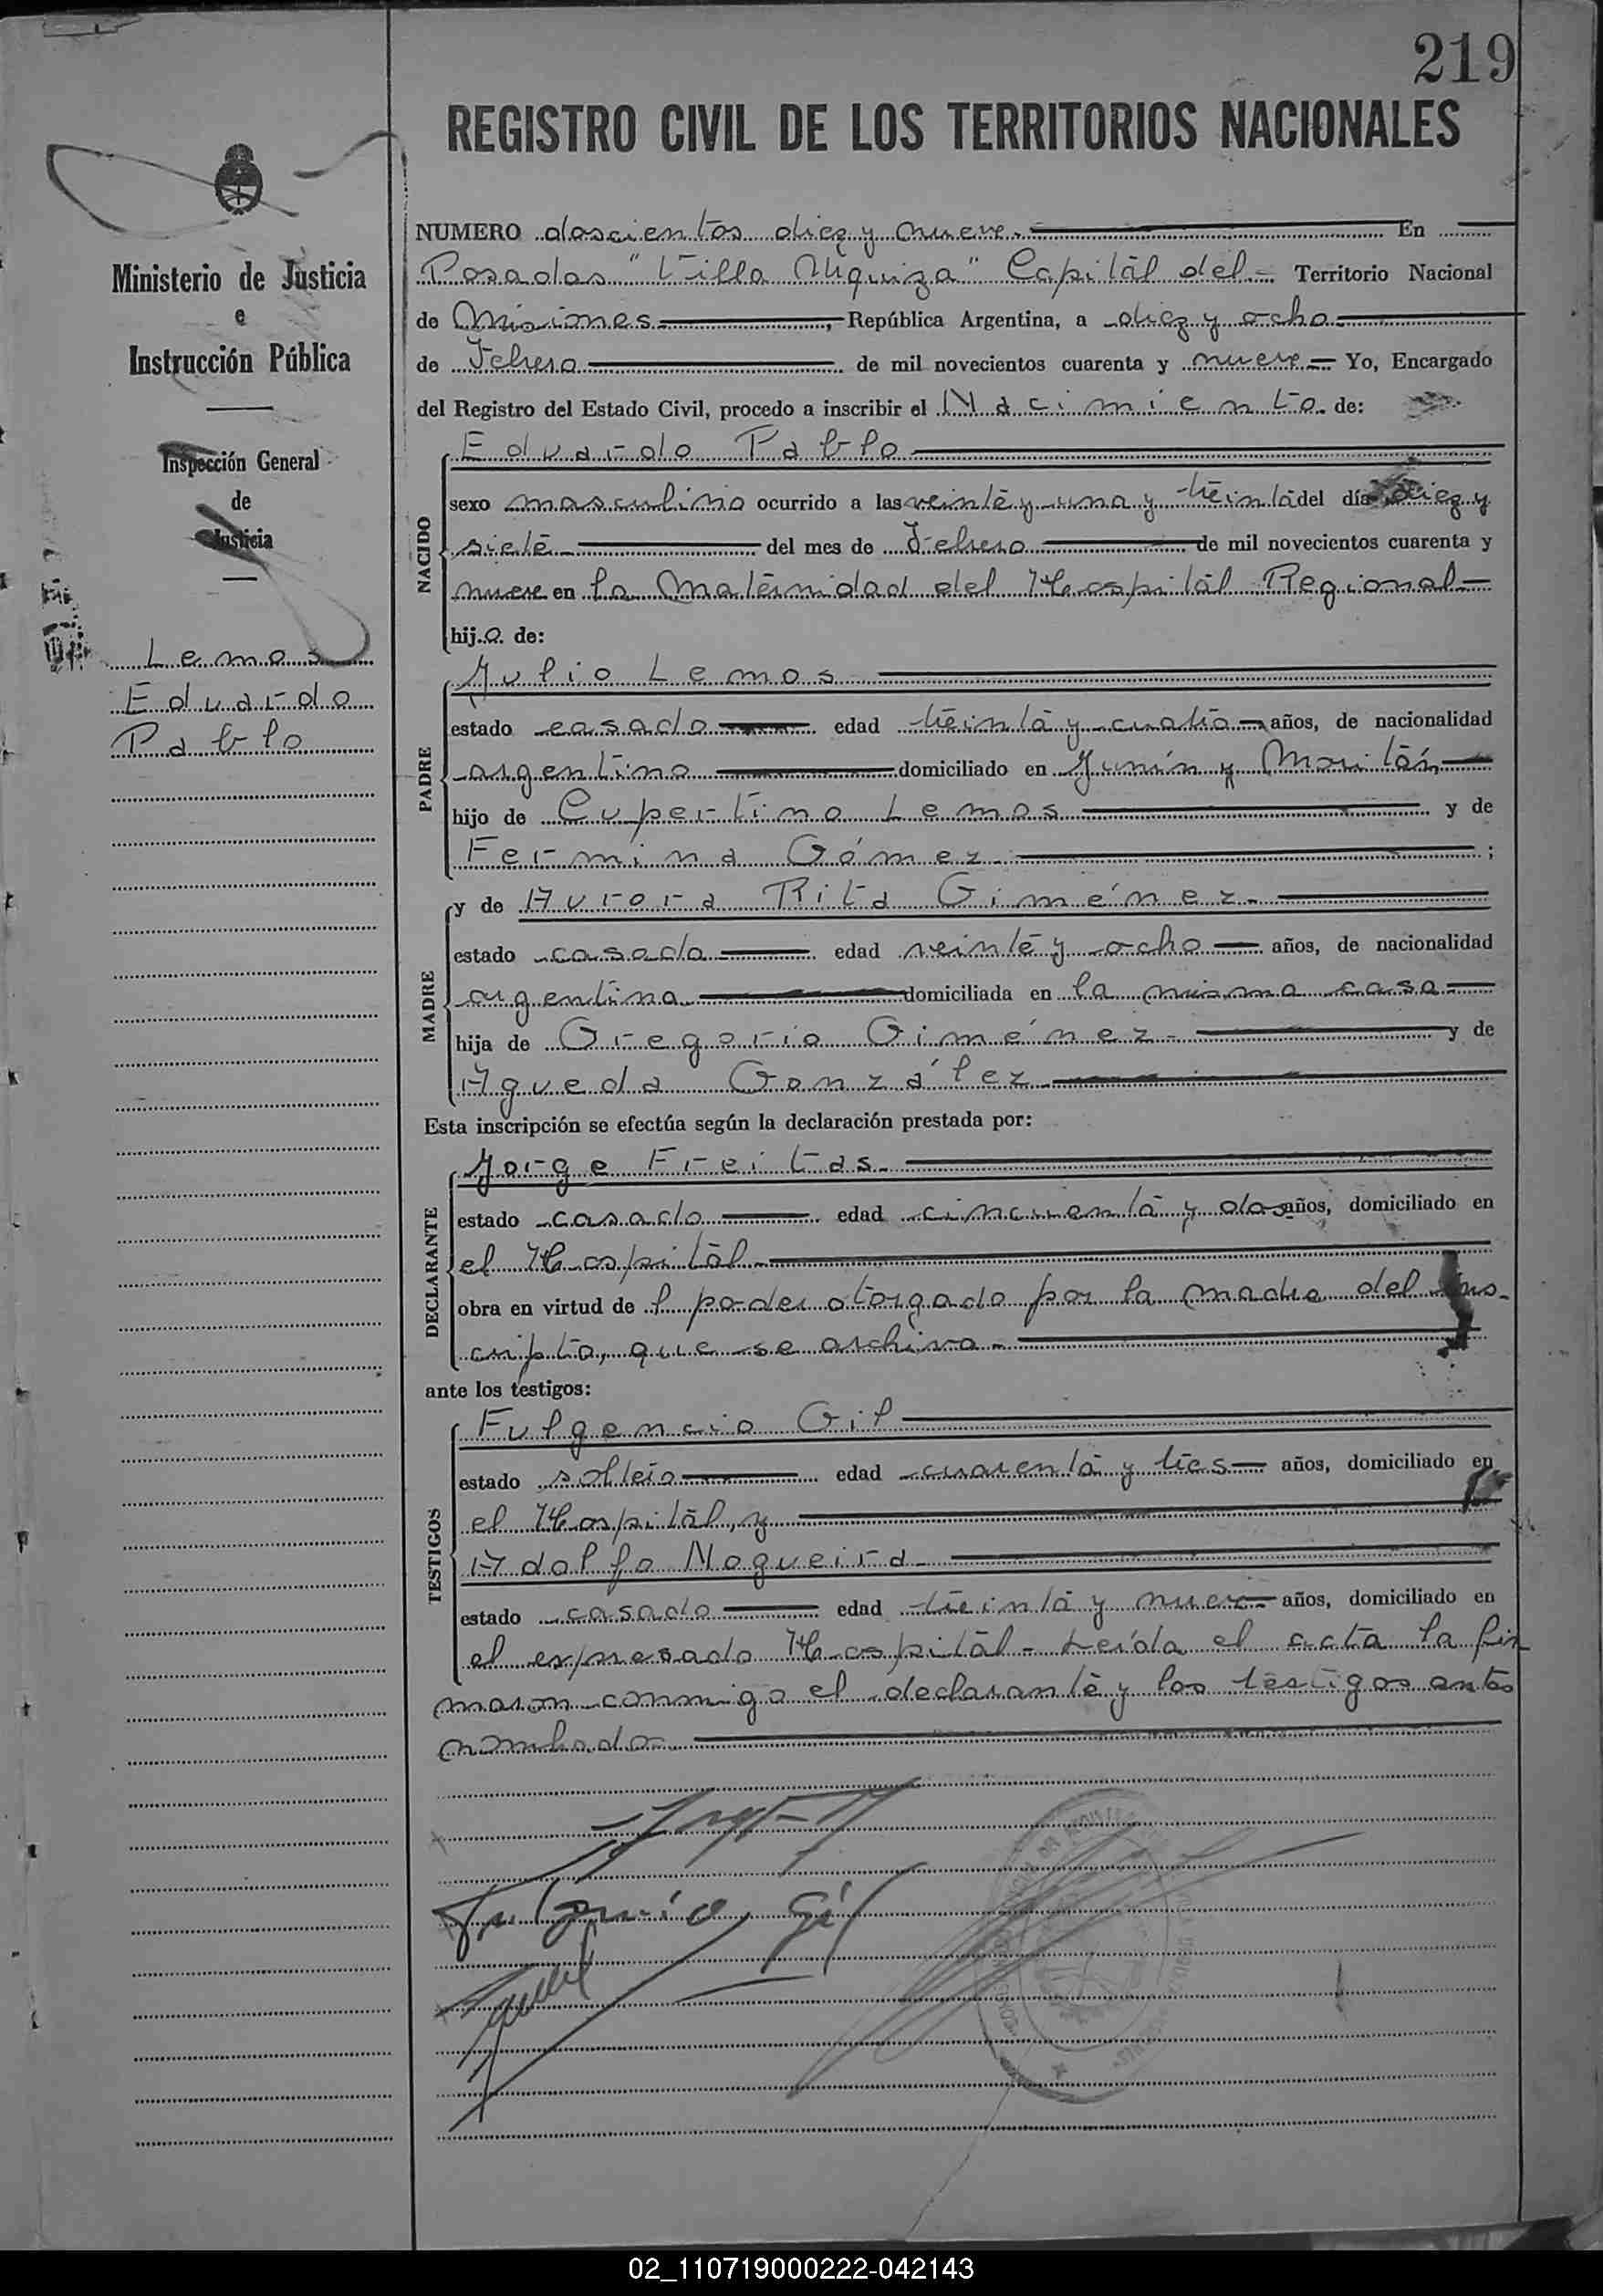 219
REGISTRO CIVIL DE LOS TERRITORIOS NACIONALES
Ministerio de Justicia
e
Instrucción Pública
Inspección General
de
Justicia
Lemos
Eduardo
Pablo
NUMERO doscientos diez y nueve.- En
Posadas "Villa Urquiza" Capital del- Territorio Nacional
de Misiones-, República Argentina, a diez y ocho-
de Febrero de mil novecientos cuarenta y nueve- Yo, Encargado
del Registro del Estado Civil, procedo a inscribir el Nacimiento de:
NACIDO
Eduardo Pablo
sexo masculino ocurrido a las veinte y una y treinta del día diez y
siete- del mes de Febrero de mil novecientos cuarenta y
nueve en la Maternidad del Hospital Regional-
hij.o. de:
PADRE
Julio Lemos
estado casado edad treinta y cuatro- años, de nacionalidad
argentino domiciliado en Junín y
hijo de Cupertino Lemos y de
Fermina Gómez- ;
MADRE
y de Aurora Rita Giménez-
estado casada edad veinte y ocho- años, de nacionalidad
argentina domiciliada en la misma casa-
hija de Gregorio Giménez- y de
Agueda González-
Esta inscripción se efectúa según la declaración prestada por:
DECLARANTE
Jorge Freitas-
estado casado edad cincuenta y dos años, domiciliado en
el Hospital-
obra en virtud de l poder otorgado por la madre del ins-
cripto, que se archiva-
ante los testigos:
TESTIGOS
Fulgencio Gil
estado soltero edad cuarenta y tres- años, domiciliado en
el Hospital, y
Adolfo Nogueira-
estado casado edad treinta y nueve- años, domiciliado en
el expresado Hospital- Leída el acta la fir
maron conmigo el declarante y los testigos antes
nombrados-
Fulgencio Gil
02_110719000222-042143